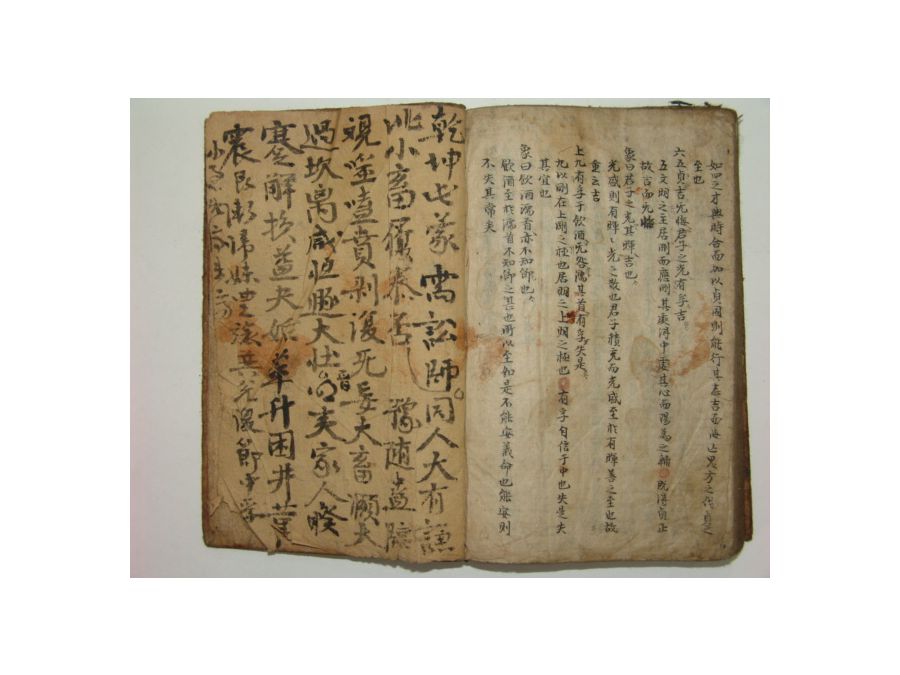 如四之才與時合而加以貞固則能行其志吉而悔亡鬼方之伐貞之
至也
六五貞吉无悔君子之光有孚吉
五文明之主居剛而應剛其處得中虛其心而陽爲之輔 既得貞正
故吉而无悔
象曰君子之光其暉吉也
光盛則有暉ㆍ光之散也君子積充而光盛至於有暉善之至也故
重云吉
上九有孚于飮酒无咎濡其首有孚失是
九以剛在上剛之極也居明之上明之極也 有孚自信于中也失是失
其宜也
象曰飮酒濡首亦不知節也
飮酒至於濡首不知節之甚也所以至如是不能安義命也能安則
不失其常矣
乾坤屯蒙需訟師同人大有謙
比小畜履泰否 豫随蠱臨
視噬嗑賁剥復无妄大畜頤大
過坎离咸恒遯大壯晋明夷家人睽
蹇解損益夬姤萃升困井革
震艮漸歸妹豊旅巽兌渙節中孚
小過旣濟未濟